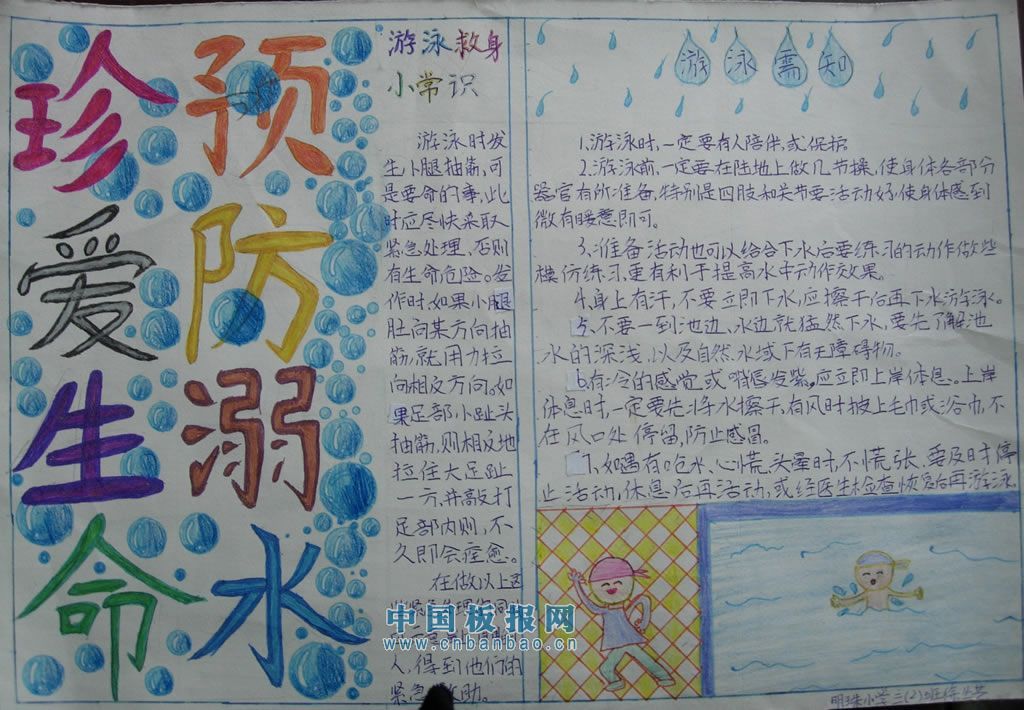 珍爱生命
预防溺水
游泳救身
小常识
游泳时发
生小腿抽筋,可
是要命的事,此
时应尽快采取
紧急处理,否则
有生命危险。发
作时,如果小腿
肚向某方向抽
筋,就用力拉
向相反方向。如
果足部,小趾头
抽筋,则相反地
拉住大足趾
一方,并敲打
足部内则,不
久即会痊愈。
在做以上这
人,得到他们的
紧急救助。
游泳需知
1.游泳时,一定要有人陪伴或保护
2.游泳前,一定要在陆地上做几节操,使身体各部分
器官有所准备,特别是四肢和关节要活动好使身体感到
微有暖意即可。
3.准备活动也可以给合下水后要练习的动作做些
模仿练习,更有利于提高水中动作效果。
4.身上有汗,不要立即下水,应擦干后再下水游泳。
5.不要一到池边、水边就猛然下水,要先了解池
水的深浅,以及自然水域下有无障碍物。
6.有冷的感觉或嘴唇发紫,应立即上岸休息。上岸
休息时,一定要先将水擦干,有风时披上毛巾或浴巾,不
在风口处停留,防止感冒。
7.如遇有呛水、心慌、头晕时,不慌张,要及时停
止活动,休息后再活动,或经医生检查恢复后再游泳
中国板报网
www.cnbanbao.cn
明珠小学三(2)班